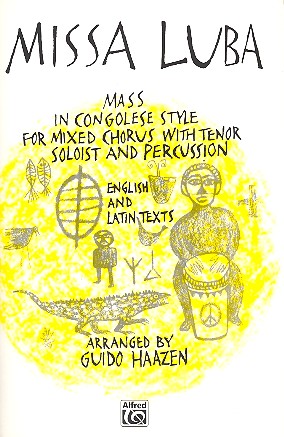 MISSA LUBA
MASS
IN CONGOLESE STYLE
FOR MIXED CHORUS WITH TENOR
SOLOIST AND PERCUSSION
ENGLISH
AND
LATIN TEXTS
ARRANGED BY
GUIDO HAAZEN
Alfred